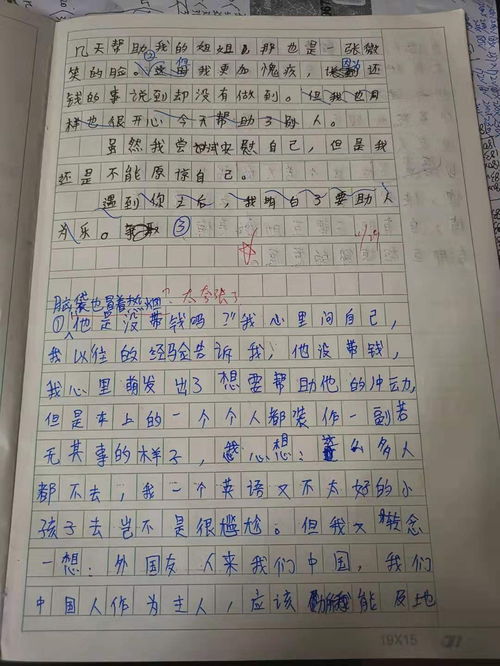 几天帮助我的姐姐,那也是一张微
②
笑的脸。这使我更加愧疚,因为还
钱的事说到却没有做到。但我也同
样也很开心今天帮助了别人。
虽然我尝试安慰自己,但是我
还是不能原谅自己。
遇到你之后,我明白了要助人
为乐。③
1/29
脑袋也冒着热烟?太夸张了
①"他是没带钱吗?"我心里问自己,
我以往的经验告诉我,他没带钱,
我心里萌发出了想要帮助他的冲动,
但是车上的一个个人都装作一副若
无其事的样子,我心想:这么多人
都不去,我一个英语又不太好的小
孩子去岂不是很尴尬。但我又转念
一想:外国友人来我们中国,我们
中国人作为主人,应该力所能及地
19×15